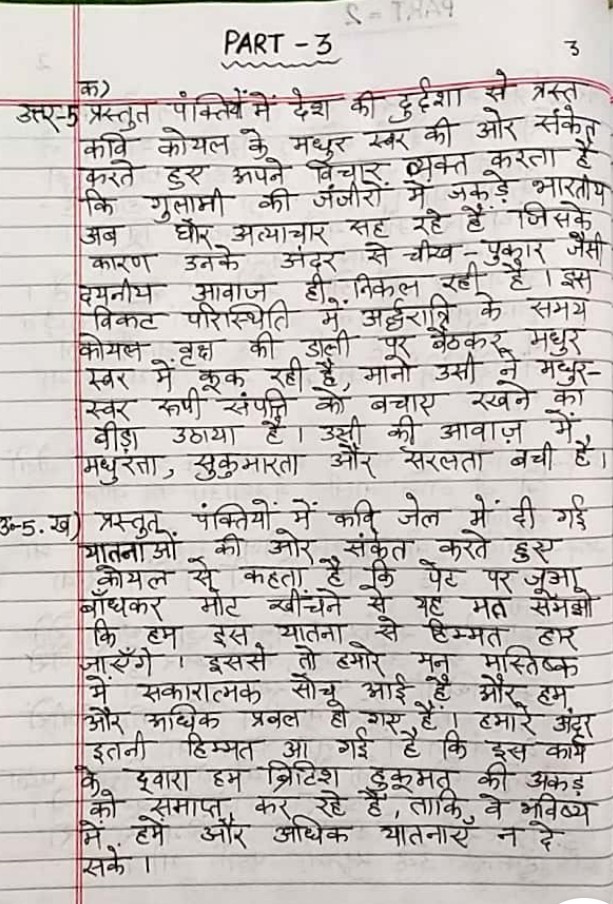 PART - 3
3
क)
उत्तर-5 प्रस्तुत पंक्तियों में देश की दुर्दशा से त्रस्त
कवि कोयल के मधुर स्वर की ओर संकेत
करते हुए अपने विचार व्यक्त करता है
कि गुलामी की जंजीरों में जकड़े भारतीय
अब घोर अत्याचार सह रहे हैं जिसके
कारण उनके अंदर से चीख - पुकार जैसी
दयनीय आवाज ही निकल रही है । इस
विकट परिस्थिति में अर्द्धरात्रि के समय
कोयल वृक्ष की डाली पर बैठकर मधुर
स्वर में कूक रही है, मानो उसी ने मधुर-
स्वर रूपी संपत्ति को बचाए रखने का
बीड़ा उठाया है । उसी की आवाज़ में
मधुरता, सुकुमारता और सरलता बची है ।
उ०-5. ख) प्रस्तुत पंक्तियों में कवि जेल में दी गई
यातनाओं की ओर संकेत करते हुए
कोयल से कहता है कि पेट पर जूआ
बाँधकर मोट खींचने से यह मत समझो
कि हम इस यातना से हिम्मत हार
जाएँगे । इससे तो हमारे मन मस्तिष्क
में सकारात्मक सोच आई है और हम
और अधिक प्रबल हो गए हैं । हमारे अंदर
इतनी हिम्मत आ गई है कि इस कार्य
के द्वारा हम ब्रिटिश हुकूमत की अकड़
को समाप्त कर रहे हैं, ताकि वे भविष्य
में हमें और अधिक यातनाएँ न दे
सकें ।